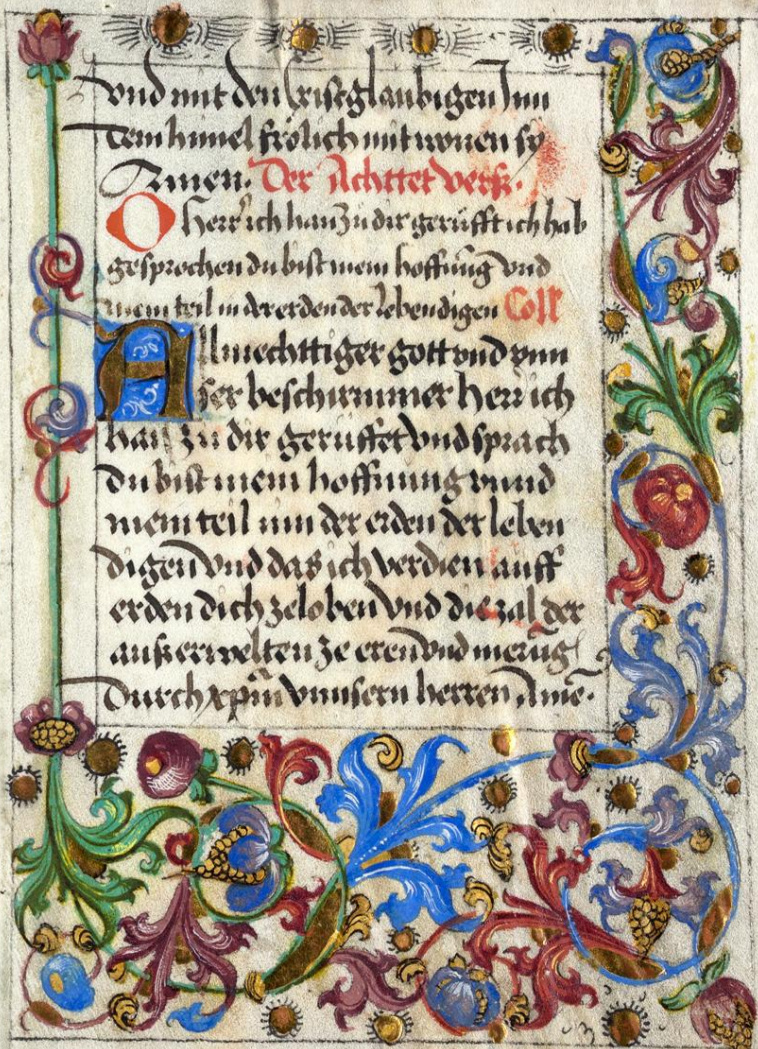 vnd mit den cristglaubigen Jnn
dem himel frölich mit wonen sy
Amen. Der Achttet verß.
O Herr ich han zu dir gerüfft ich hab
gesprochen du bist mein hoffnug vnd
mein teil in der erden der lebendigen Coll
Allmechttiger gott vnd vnn
ser beschirmmer herr ich
han zu dir gerüffet vnd sprach
du bist mein hoffnung vnnd
mein teil inn der erden der leben
digen vnd das ich verdien auff
erden dich ze loben vnd die zal der
außerwelten ze eren vnd
Durch xpm̄ vnnsern herren Ame.